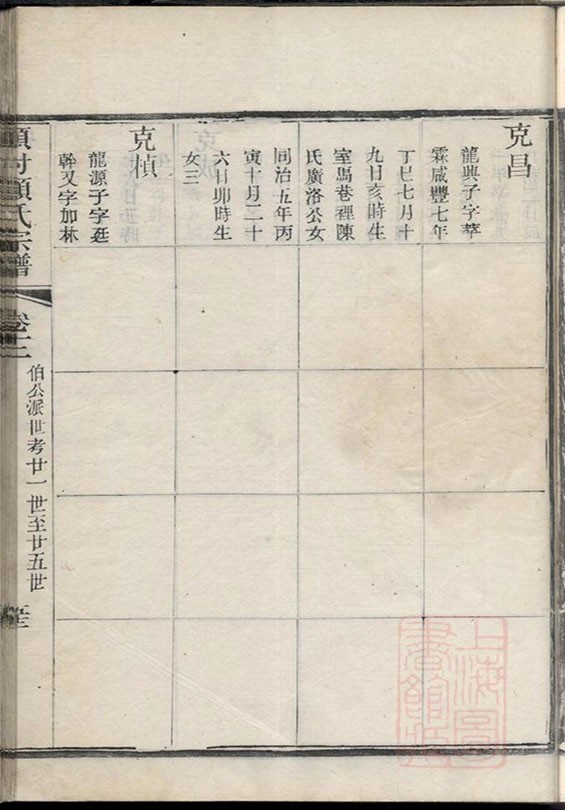 克昌
龍興子字華
霖咸豐七年
丁巳七月十
九日亥時生
室馬巷裡陳
氏廣洛公女
同治五年丙
寅十月二十
六日卯時生
女三
克楨
龍源子字廷
幹又字加林
項村顧氏宗譜
卷十二
伯公派世考廿一世至廿五世
上海圖
書館藏